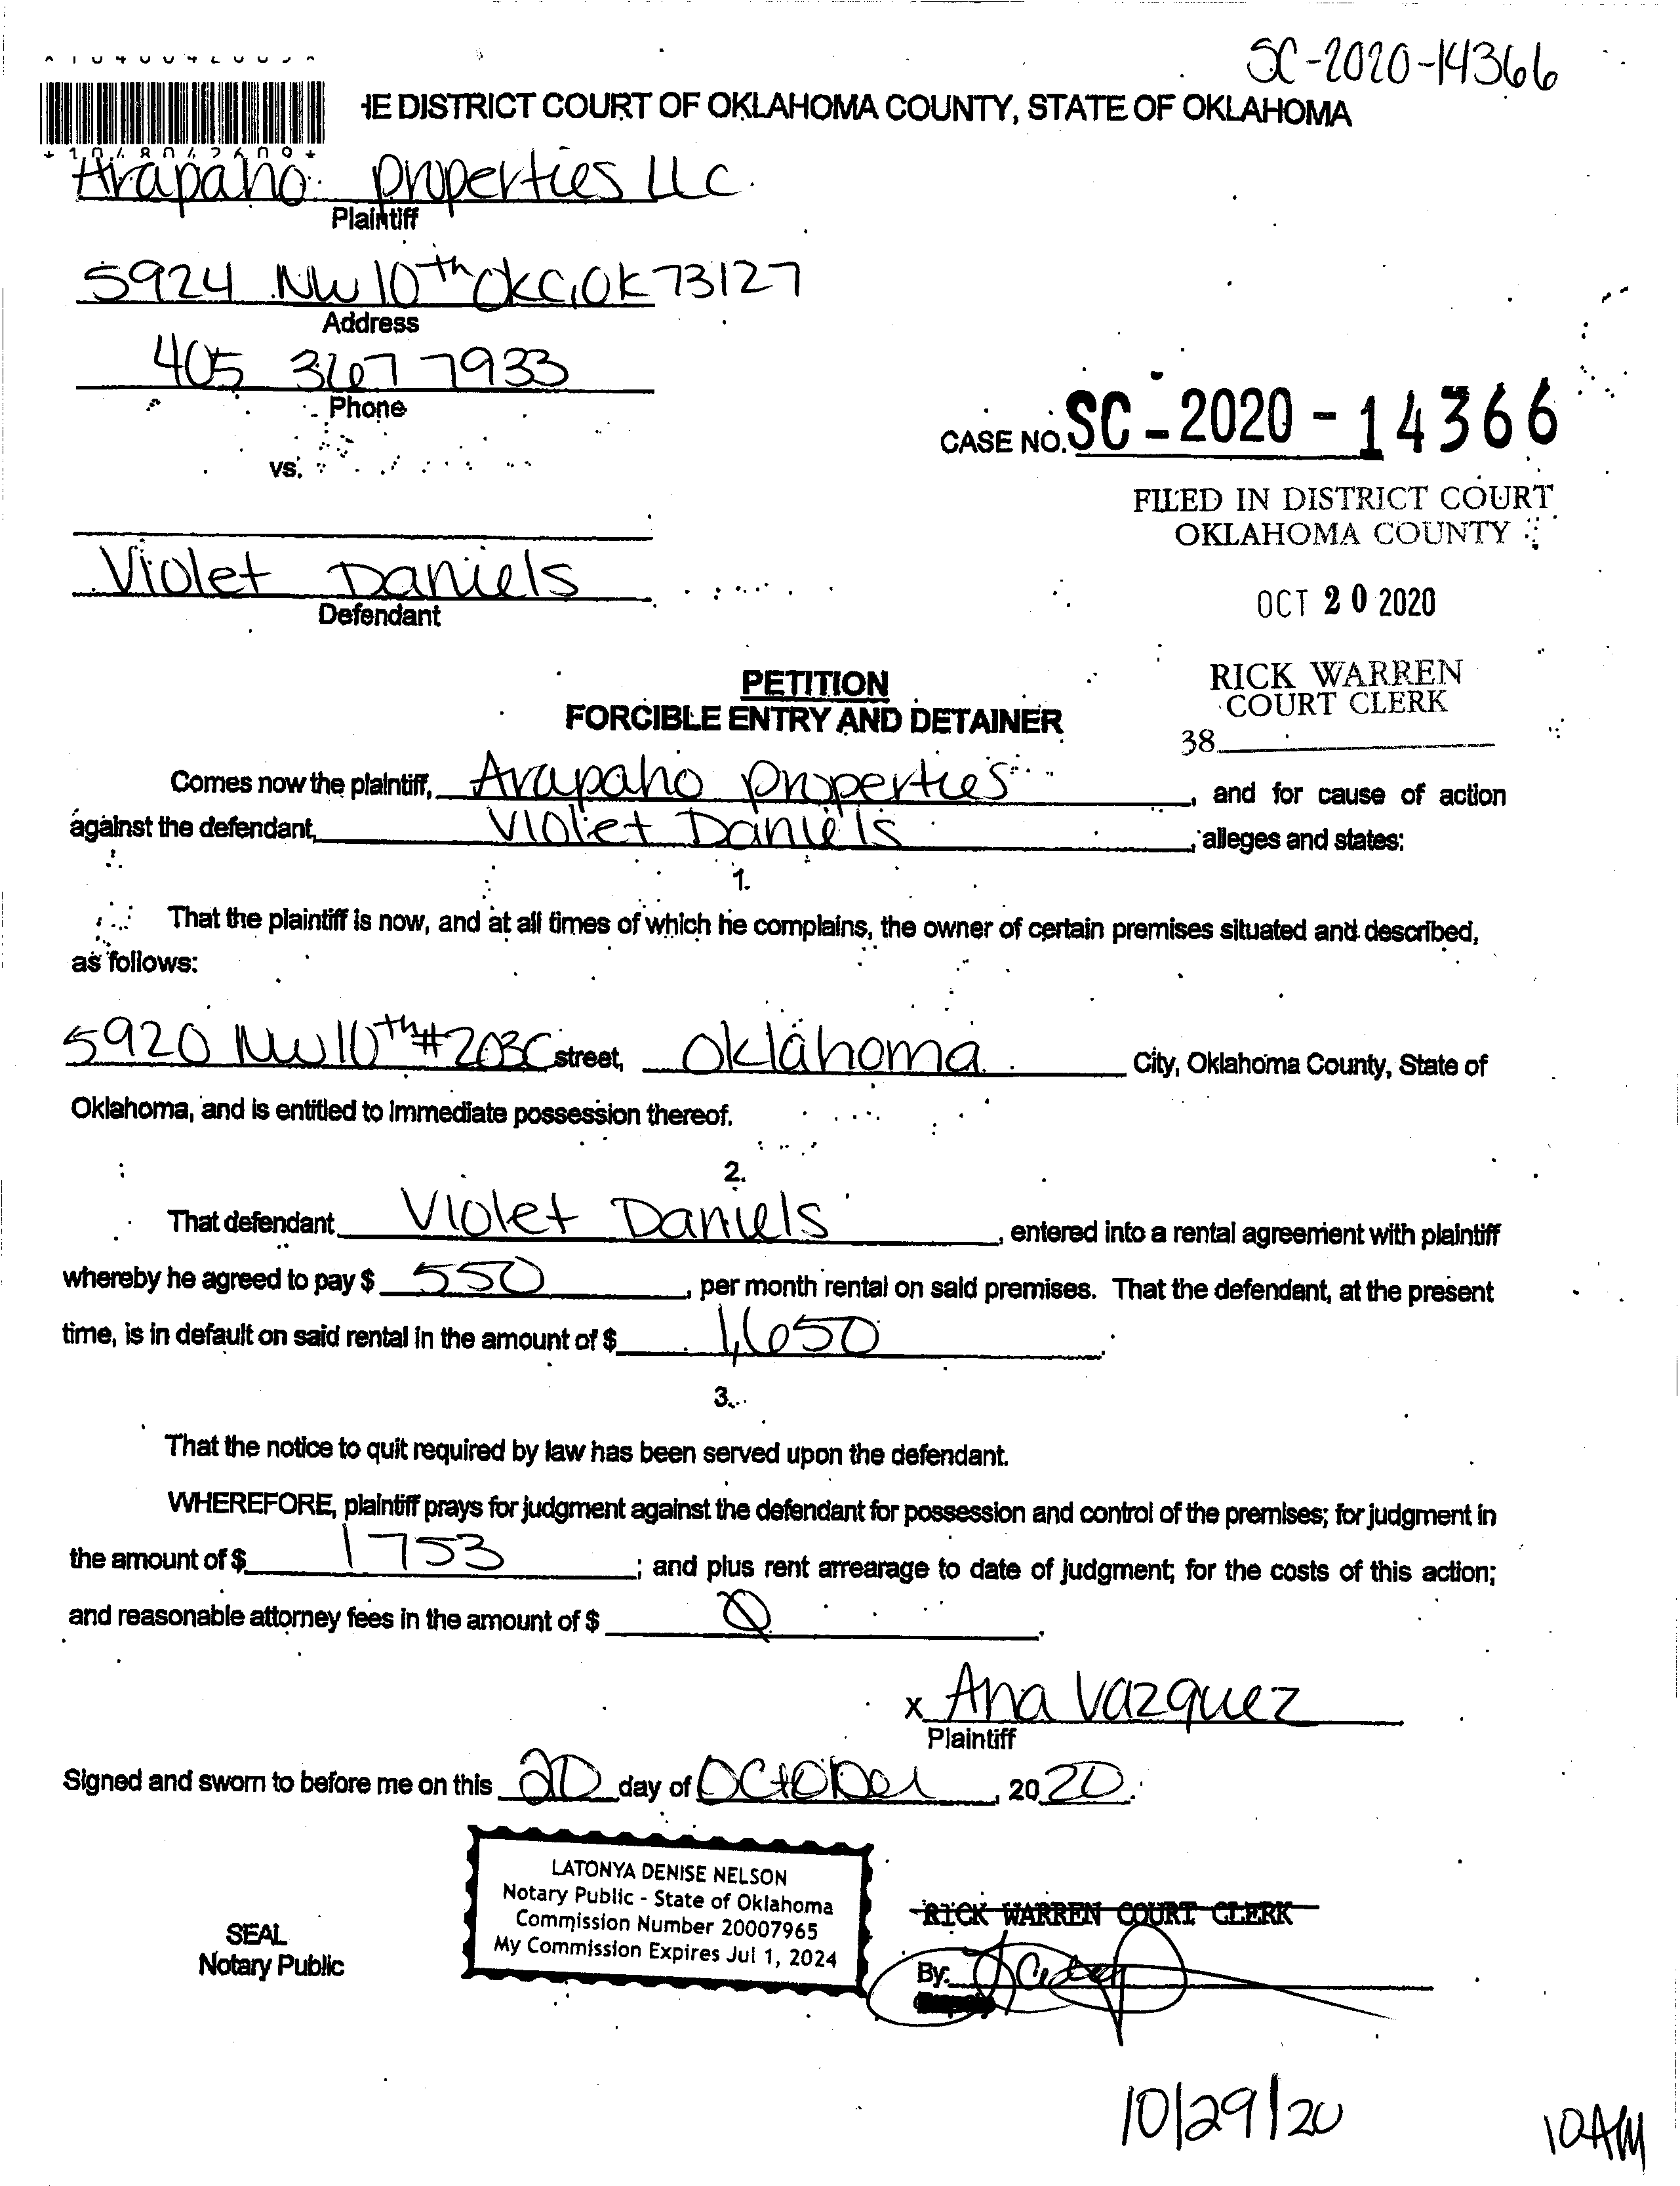 SC-2020-14366
IE DISTRICT COURT OF OKLAHOMA COUNTY, STATE OF OKLAHOMA
Arapaho properties LLC
Plaintiff
5924 NW 10th OKC, OK 73127
Address
405 367 7933
Phone
CASE NO. SC - 2020 - 14366
vs.
FILED IN DISTRICT COURT
OKLAHOMA COUNTY
Violet Daniels
Defendant
OCT 20 2020
RICK WARREN
COURT CLERK
38
PETITION
FORCIBLE ENTRY AND DETAINER
Comes now the plaintiff, Arapaho properties, and for cause of action
against the defendant, Violet Daniels, alleges and states:
1.
That the plaintiff is now, and at all times of which he complains, the owner of certain premises situated and described,
as follows:
5920 NW 10th #203C street, Oklahoma City, Oklahoma County, State of
Oklahoma, and is entitled to immediate possession thereof.
2.
That defendant Violet Daniels, entered into a rental agreement with plaintiff
whereby he agreed to pay $ 550, per month rental on said premises. That the defendant, at the present
time, is in default on said rental in the amount of $ 1,650.
3.
That the notice to quit required by law has been served upon the defendant.
WHEREFORE, plaintiff prays for judgment against the defendant for possession and control of the premises; for judgment in
the amount of $ 1753; and plus rent arrearage to date of judgment; for the costs of this action;
and reasonable attorney fees in the amount of $ 0.
x Ana Vazquez
Plaintiff
Signed and sworn to before me on this 20 day of October, 2020.
LATONYA DENISE NELSON
Notary Public - State of Oklahoma
Commission Number 20007965
My Commission Expires Jul 1, 2024
SEAL
Notary Public
RICK WARREN COURT CLERK
By:
10/29/20 10AM